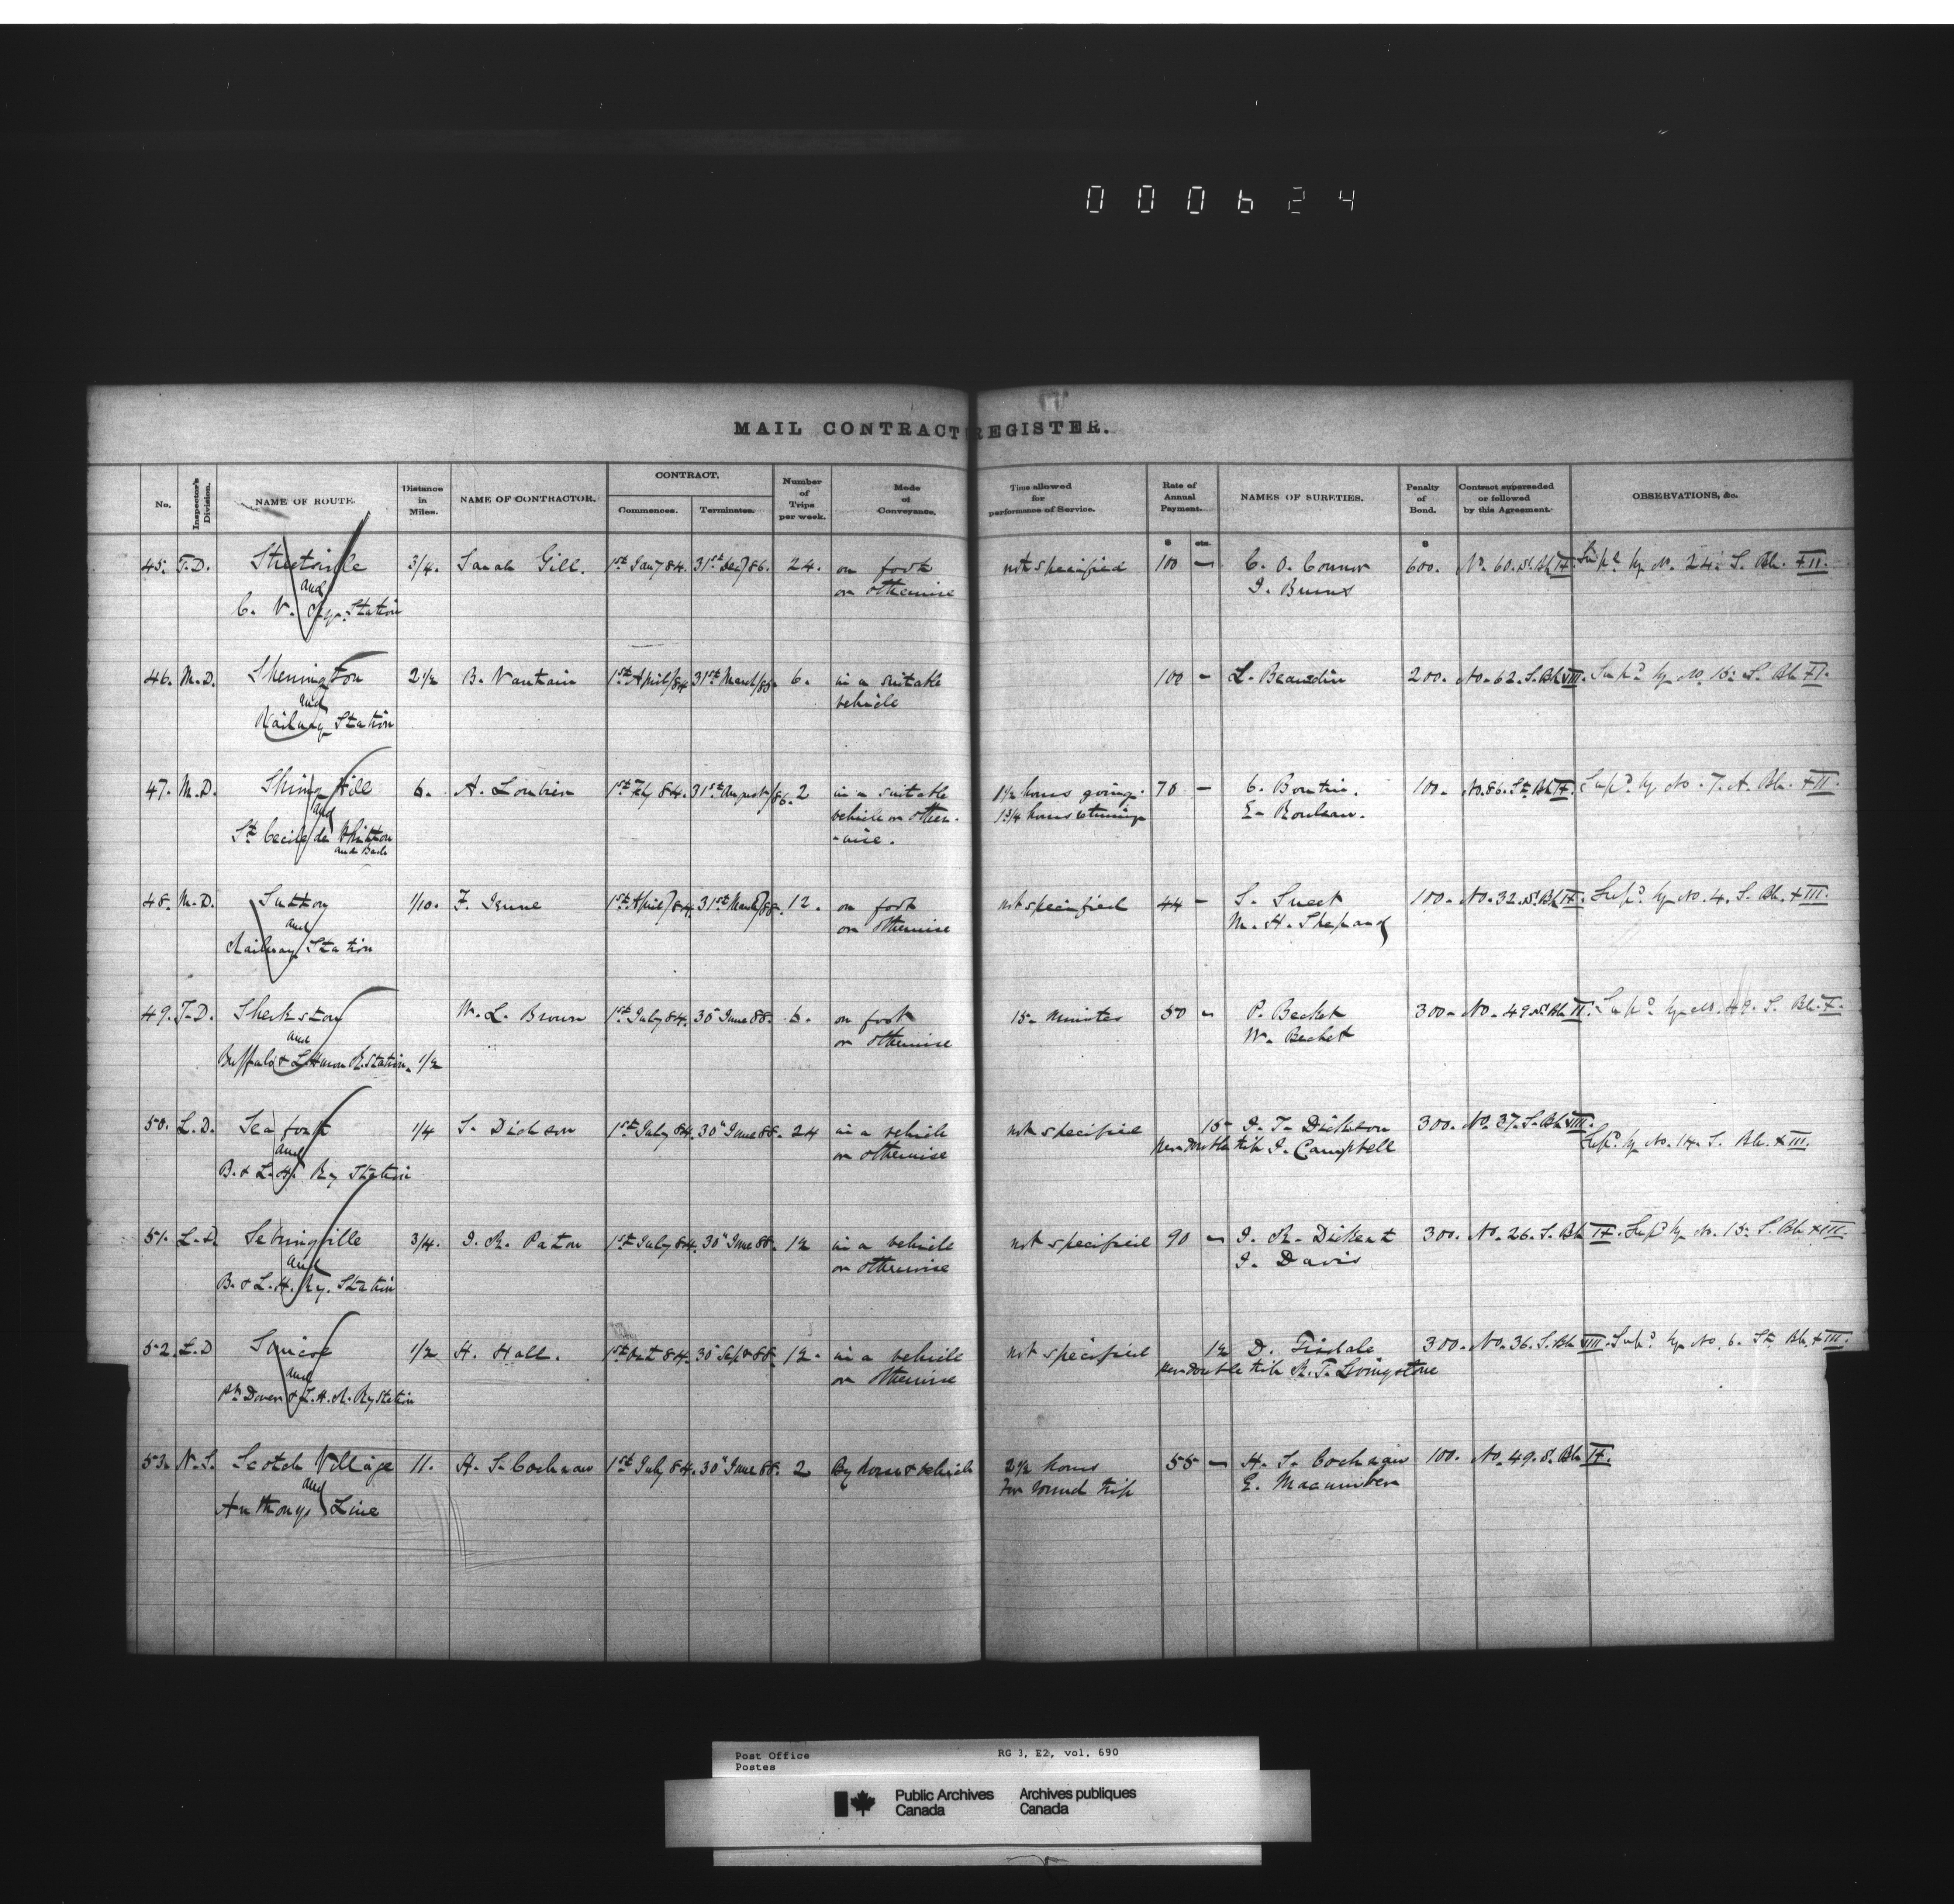 000624
MAIL CONTRACT REGISTER.
No. Inspector's Division. NAME OF ROUTE. Distance in Miles. NAME OF CONTRACTOR. CONTRACT. Commences. Terminates. Number of Trips per week. Mode of Conveyance. Time allowed for performance of Service. Rate of Annual Payment. $ cts. NAMES OF SURETIES. Penalty of Bond. $ Contract superseded or followed by this Agreement. OBSERVATIONS, &c.
45. T.D. Streetsville 3/4. Sarah Gill. 1st Jany 84. 31st Dec/86. 24. on foot not specified 100 — C. O. Connor 600. No. 60. S. Bk IX. Sup'd by No. 24. S. Bk. XII.
and or otherwise J. Burns
C. V. Ry. Station
46. M.D. Sherrington 2 1/2 B. Vautrain 1st April/84 31st March/88. 6. in a suitable 100 — L. Beaudin 200. No. 62. S. Bk VIII. Sup'd by No. 15. S. Bk XI.
and vehicle
Railway Station
47. M.D. Spring Hill 6. A. Loubier 1st July 84. 31st August/86. 2 in a suitable 1 1/2 hours going. 70 — C. Boutin. 100. No. 86. St. Bk IX. Sup'd by No. 7. A. Bk. XII.
and vehicle or other- 1 3/4 hours returning E. Rouleau.
St. Cecile de Whitton -wise.
and Back
48. M.D. Sutton 1/10. F. Jenne 1st April/84. 31st March/88. 12. on foot not specified 44 — S. Sweet 100. No. 32. S. Bk IX. Sup'd by No. 4. S. Bk. XIII.
and or otherwise M. H. Shepard
Railway Station
49. T.D. Sherkston W. L. Brown 1st July 84. 30" June 88. 6. on foot 15. Minutes 50 — P. Becket 300. No. 49 S. Bk II. Sup'd by No. 49. S. Bk. X.
and or otherwise W. Becket
Buffalo & L. Huron R. Station. 1/2
50. L.D. Seaforth 1/4 S. Dickson 1st July 84. 30" June 88. 24 in a vehicle not specified 15 J. T. Dickson 300. No. 37. S. Bk VIII.
and or otherwise per double trip J. Campbell Sup'd by No. 14. S. Bk. XIII.
B. & L. H. Ry Station
51. L.D. Sebringville 3/4. J. R. Paton 1st July 84. 30" June 88. 12 in a vehicle not specified 90 — J. R. Dickent 300. No. 26. S. Bk IX. Sup'd by No. 15. S. Bk XIII.
and or otherwise J. Davis
B. & L. H. Ry. Station
52. L.D Simcoe 1/2 H. Hall. 1st Oct 84. 30" Sept 88. 12. in a vehicle not specified 12 D. Tisdale 300. No. 36. S. Bk VIII. Sup'd by No. 6. St. Bk. XIII.
and or otherwise per double trip R. T. Livingstone
Pt. Dover & L. H. R. Ry Station
53. N.S. Scotch Village 11. H. S. Cochran 1st July 84. 30" June 88. 2 By horse & vehicle 2 1/2 hours 55 — H. S. Cochran 100. No. 49. S. Bk IX.
and for round trip E. Macumber
Anthony's Line
Post Office RG 3, E2, vol. 690
Postes
Public Archives Archives publiques
Canada Canada